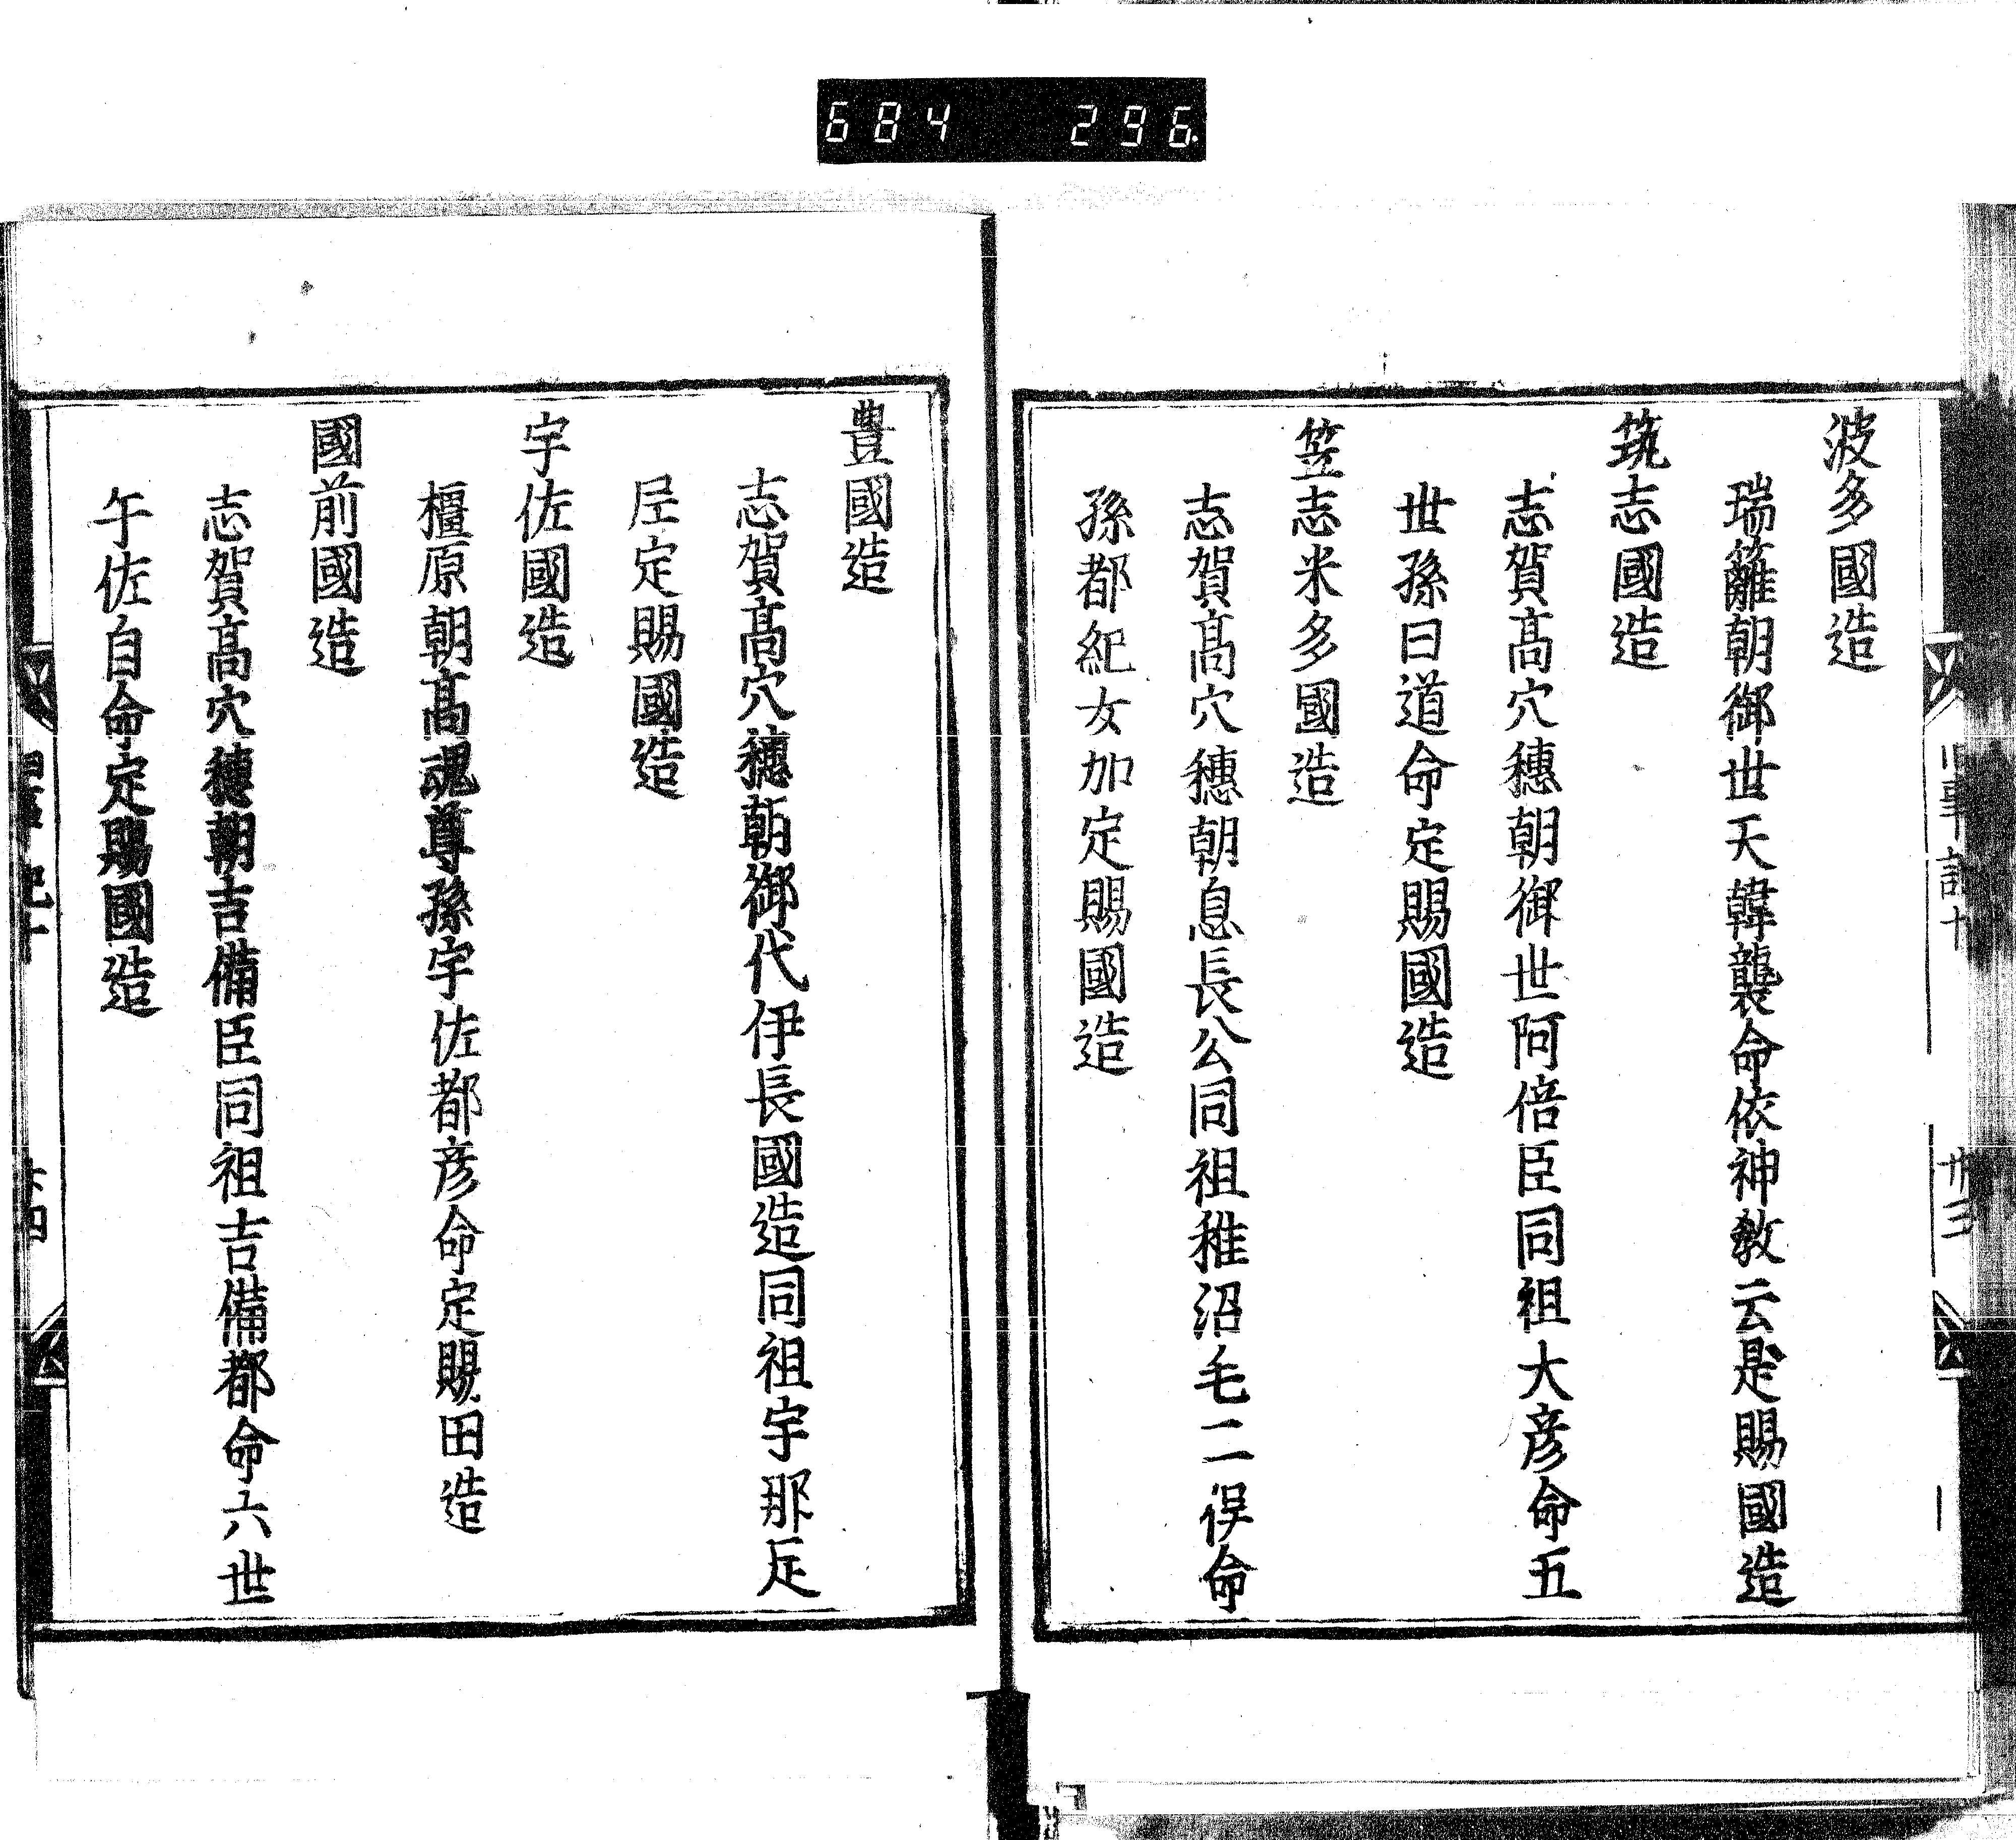 684 296.
波多國造
瑞籬朝御世天韓襲命依神敎云是賜國造
筑志國造
志賀髙穴穗朝御世阿倍臣同祖大彦命五
世孫曰道命定賜國造
笠志米多國造
志賀髙穴穗朝息長公同祖稚沼毛二俣命
孫都紀女加定賜國造
豊國造
志賀髙穴穗朝御代伊長國造同祖宇那足
尼定賜國造
宇佐國造
橿原朝髙魂尊孫宇佐都彦命定賜田造
國前國造
志賀髙穴穗朝吉備臣同祖吉備都命六世
午佐自命定賜國造